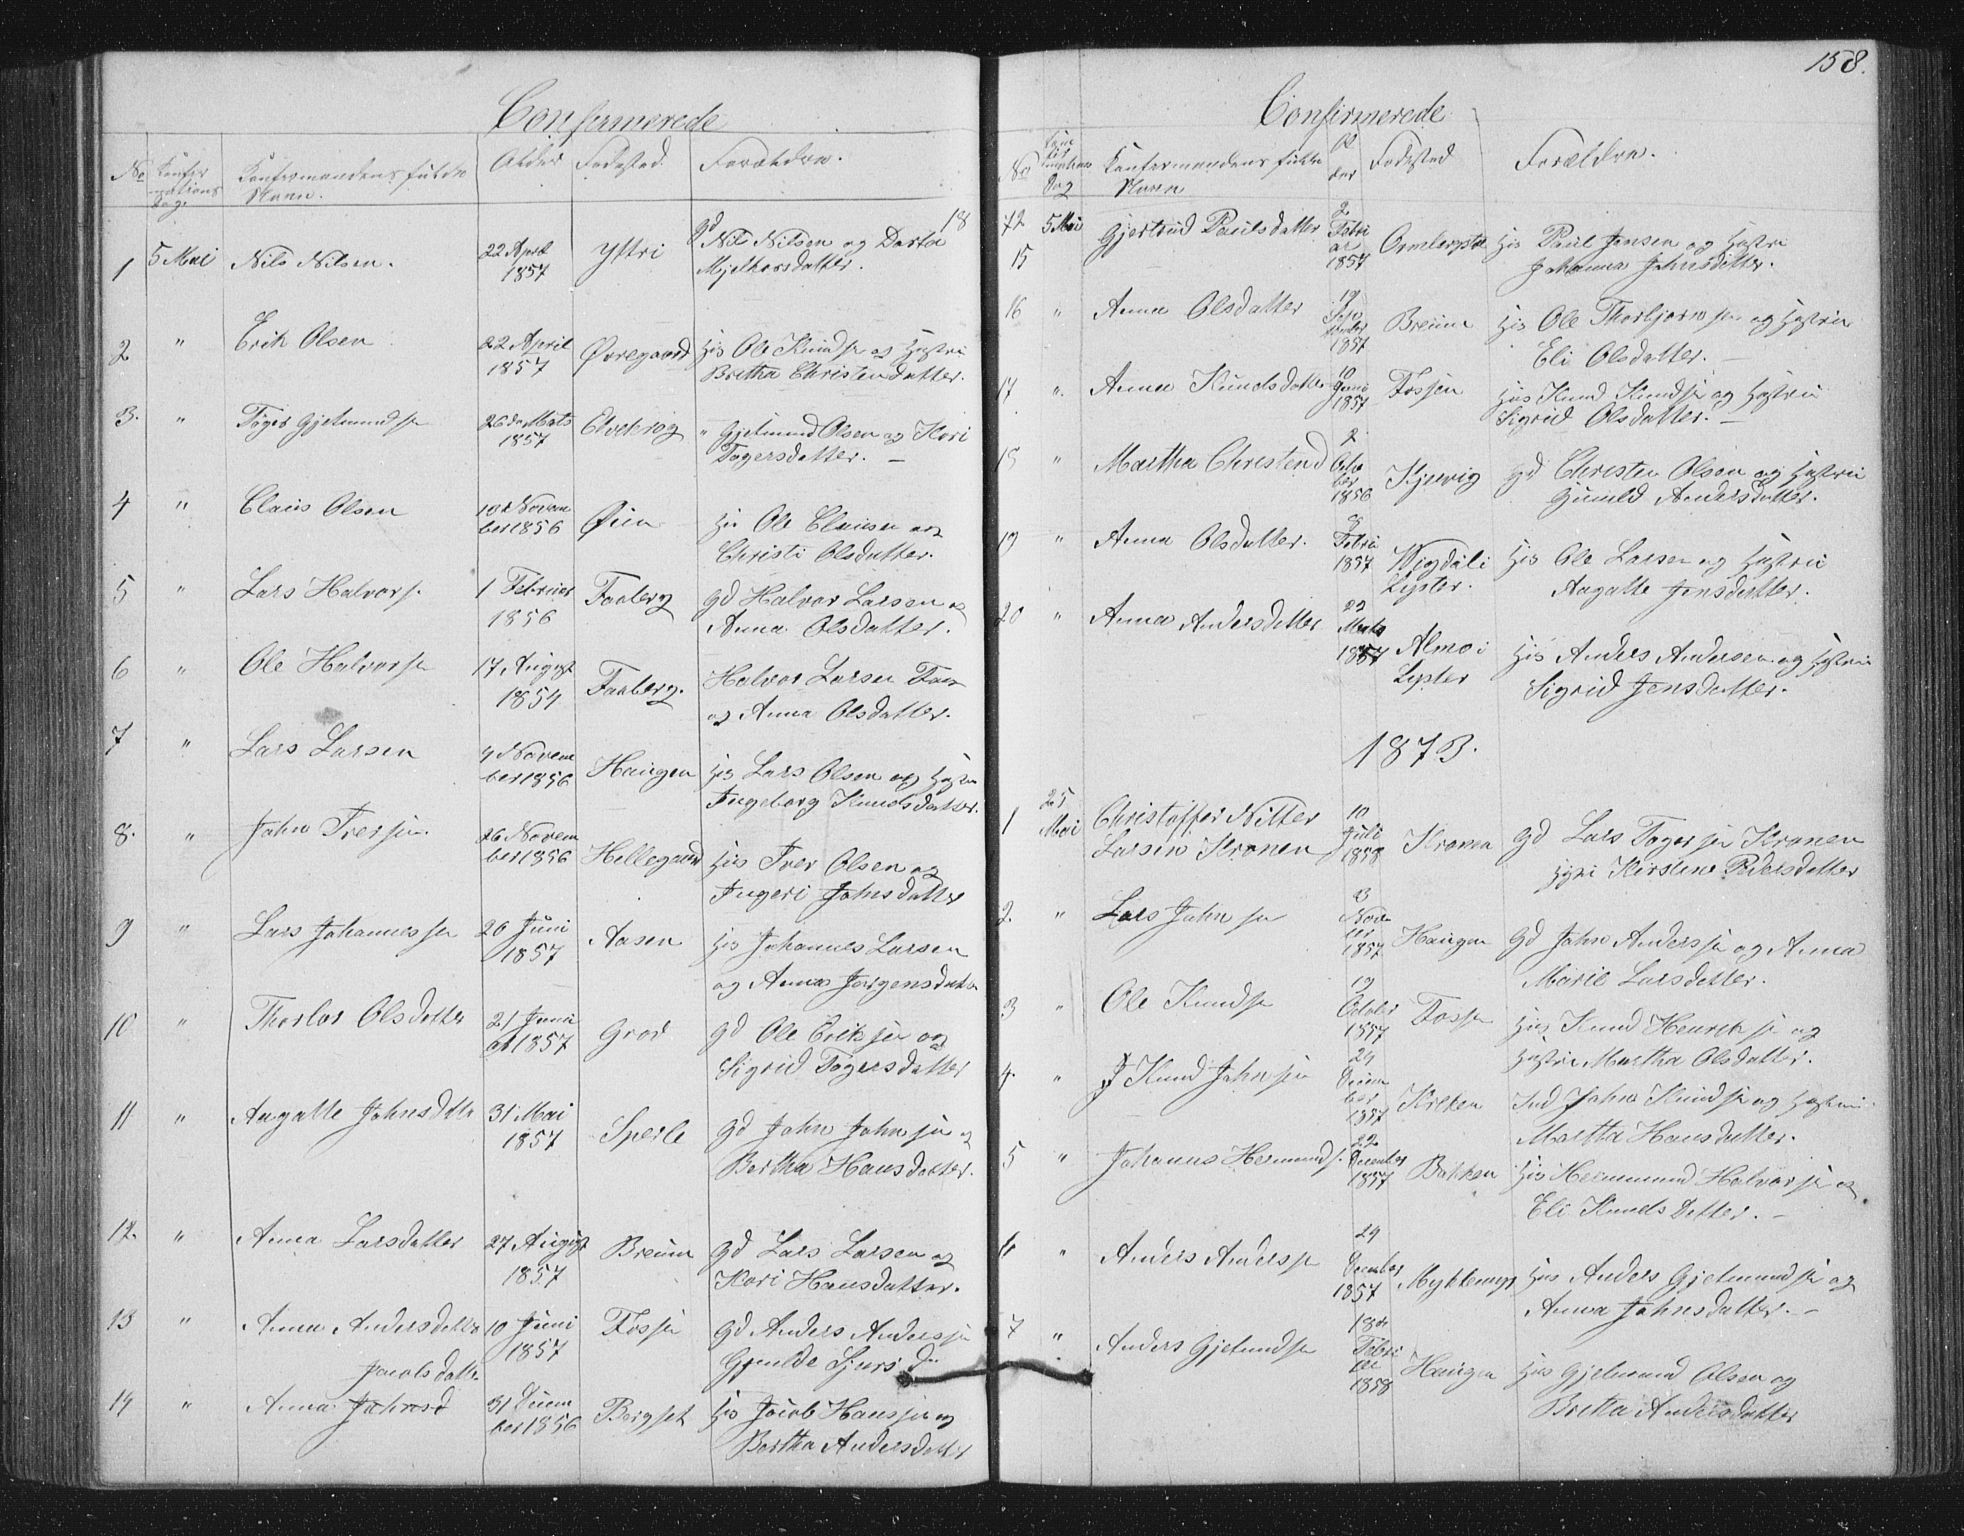 Confirmerede
No Konfir mations Dag. Konfirmandens fulde Navn. Alder Fødested. Forældre.
18
1 5 Mai Nils Nilsen. 22 April 1857 Ystri gd Nils Nilsen og Dorte
Mjelhorsdatter.
2 " Erik Olsen 22 April 1857 Øvregaard Hs Ole Knudsen og Hustru
Bretha Christendatter.
3. " Tøger Gjelmundsen 26de Mats 1857 Elvekrog " Gjelmund Olsen og Kari
Tøgersdatter. —
4 " Claus Olsen 10de Novem ber 1856 Øien Hs Ole Clausen og
Christi Olsdatter.
5 " Lars Halvors. 1 Februar 1856 Faaberg gd Halvor Larsen og
Anna Olsdatter.
6 " Ole Halvorsen 17 August 1854 Faaberg. Halvor Larsen Faa
og Anna Olsdatter.
7 " Lars Larsen 4 Novem ber 1856 Haugen Hs Lars Olsen og Hustru
Ingeborg Knudsdatter.
8. " John Iversen. 26 Novem ber 1856 Hellegaard Hs Iver Olsen og
Ingeri Johnsdatter
9 " Lars Johannessen 20 Juni 1857 Aasen Hs Johannes Larsen
og Anna Jørgensdatter
10 " Thorlor Olsdatter 21 Janu ar 1857 Grov gd Ole Eriksen og
Sigrid Tøgersdatter
11 " Aagatte Johnsdatter 31 Mai 1857 Sperle gd John Johnsen og
Bertha Hansdatter.
12. " Anna Larsdatter 27 August 1857 Breum gd Lars Larsen og
Kari Hansdatter.
13 " Anna Andersdatter 10 Juni 1857 Fossen gd Anders Andersen
Gjunlde Sjursdr
Jacobsdatter
14 " Anna Johnsd 31 Decem ber 1856 Bergset Hs Jacob Hansen og
Bertha Andersdatter
158.
Confirmerede
No Konfirmations Dag Konfirmandens fulde Navn Alder Fødested Forældre.
72
15 5 Mai Gjertrud Paulsdatter 2 Febru ar 1857 Ormbergstøl Hs Paul Jensen og Hustru
Johanna Johnsdatter.
16 " Anna Olsdatter 19 September 1857 Breum Hs Ole Thorbjørnsen og Hustru
Eli Olsdatter. —
17 " Anna Knudsdatter 10 Juni 1857 Fossen Hs Knud Knudsen og Hustru
Sigrid Olsdatter. —
18 " Martha Christend 2 Octo ber 1856 Kjervig gd Christen Olsen og Hustru
Gunild Andersdatter.
19 " Anna Olsdatter. 8 Febru 1857 Wigdal i Lyster. Hs Ole Larsen og Hustru
Aagatte Jensdatter.
20 " Anna Andersdatter 22 Mats 1857 Almo i Lyster Hs Anders Andersen og Hustru
Sigrid Jensdatter.
1873.
1 25 Mai Christoffer Nitter Larsen Kronen 10 Juli 1858 Kronen gd Lars Tøgersen Kronen
Kirstine Pedersdatter
2. " Lars Johnsen 3 Novber 1857 Haugen gd John Anderssen og Anna
Marie Larsdatter.
3 " Ole Knudsen 19 October 1857 Fossen Hs Knud Henriksen og
Hustru Martha Olsdatter.
4. " Knud Johnsen 24 Decem ber 1857 Kreken Ind John Knudsen og Hustru
Martha Hansdatter.
5 " Johannes Hermunds. 22 December 1857 Bakken Hs Hermund Halvorsen og
Eli Knudsdatter. —
6 " Anders Anderssen 29 December 1857 Myklemyr Hs Anders Gjelmundsen og
Anna Johnsdatter. —
7 " Anders Gjelmundsen 18de Febru ar 1858 Haugen Hs Gjelmund Olsen og
Bretta Andersdatter